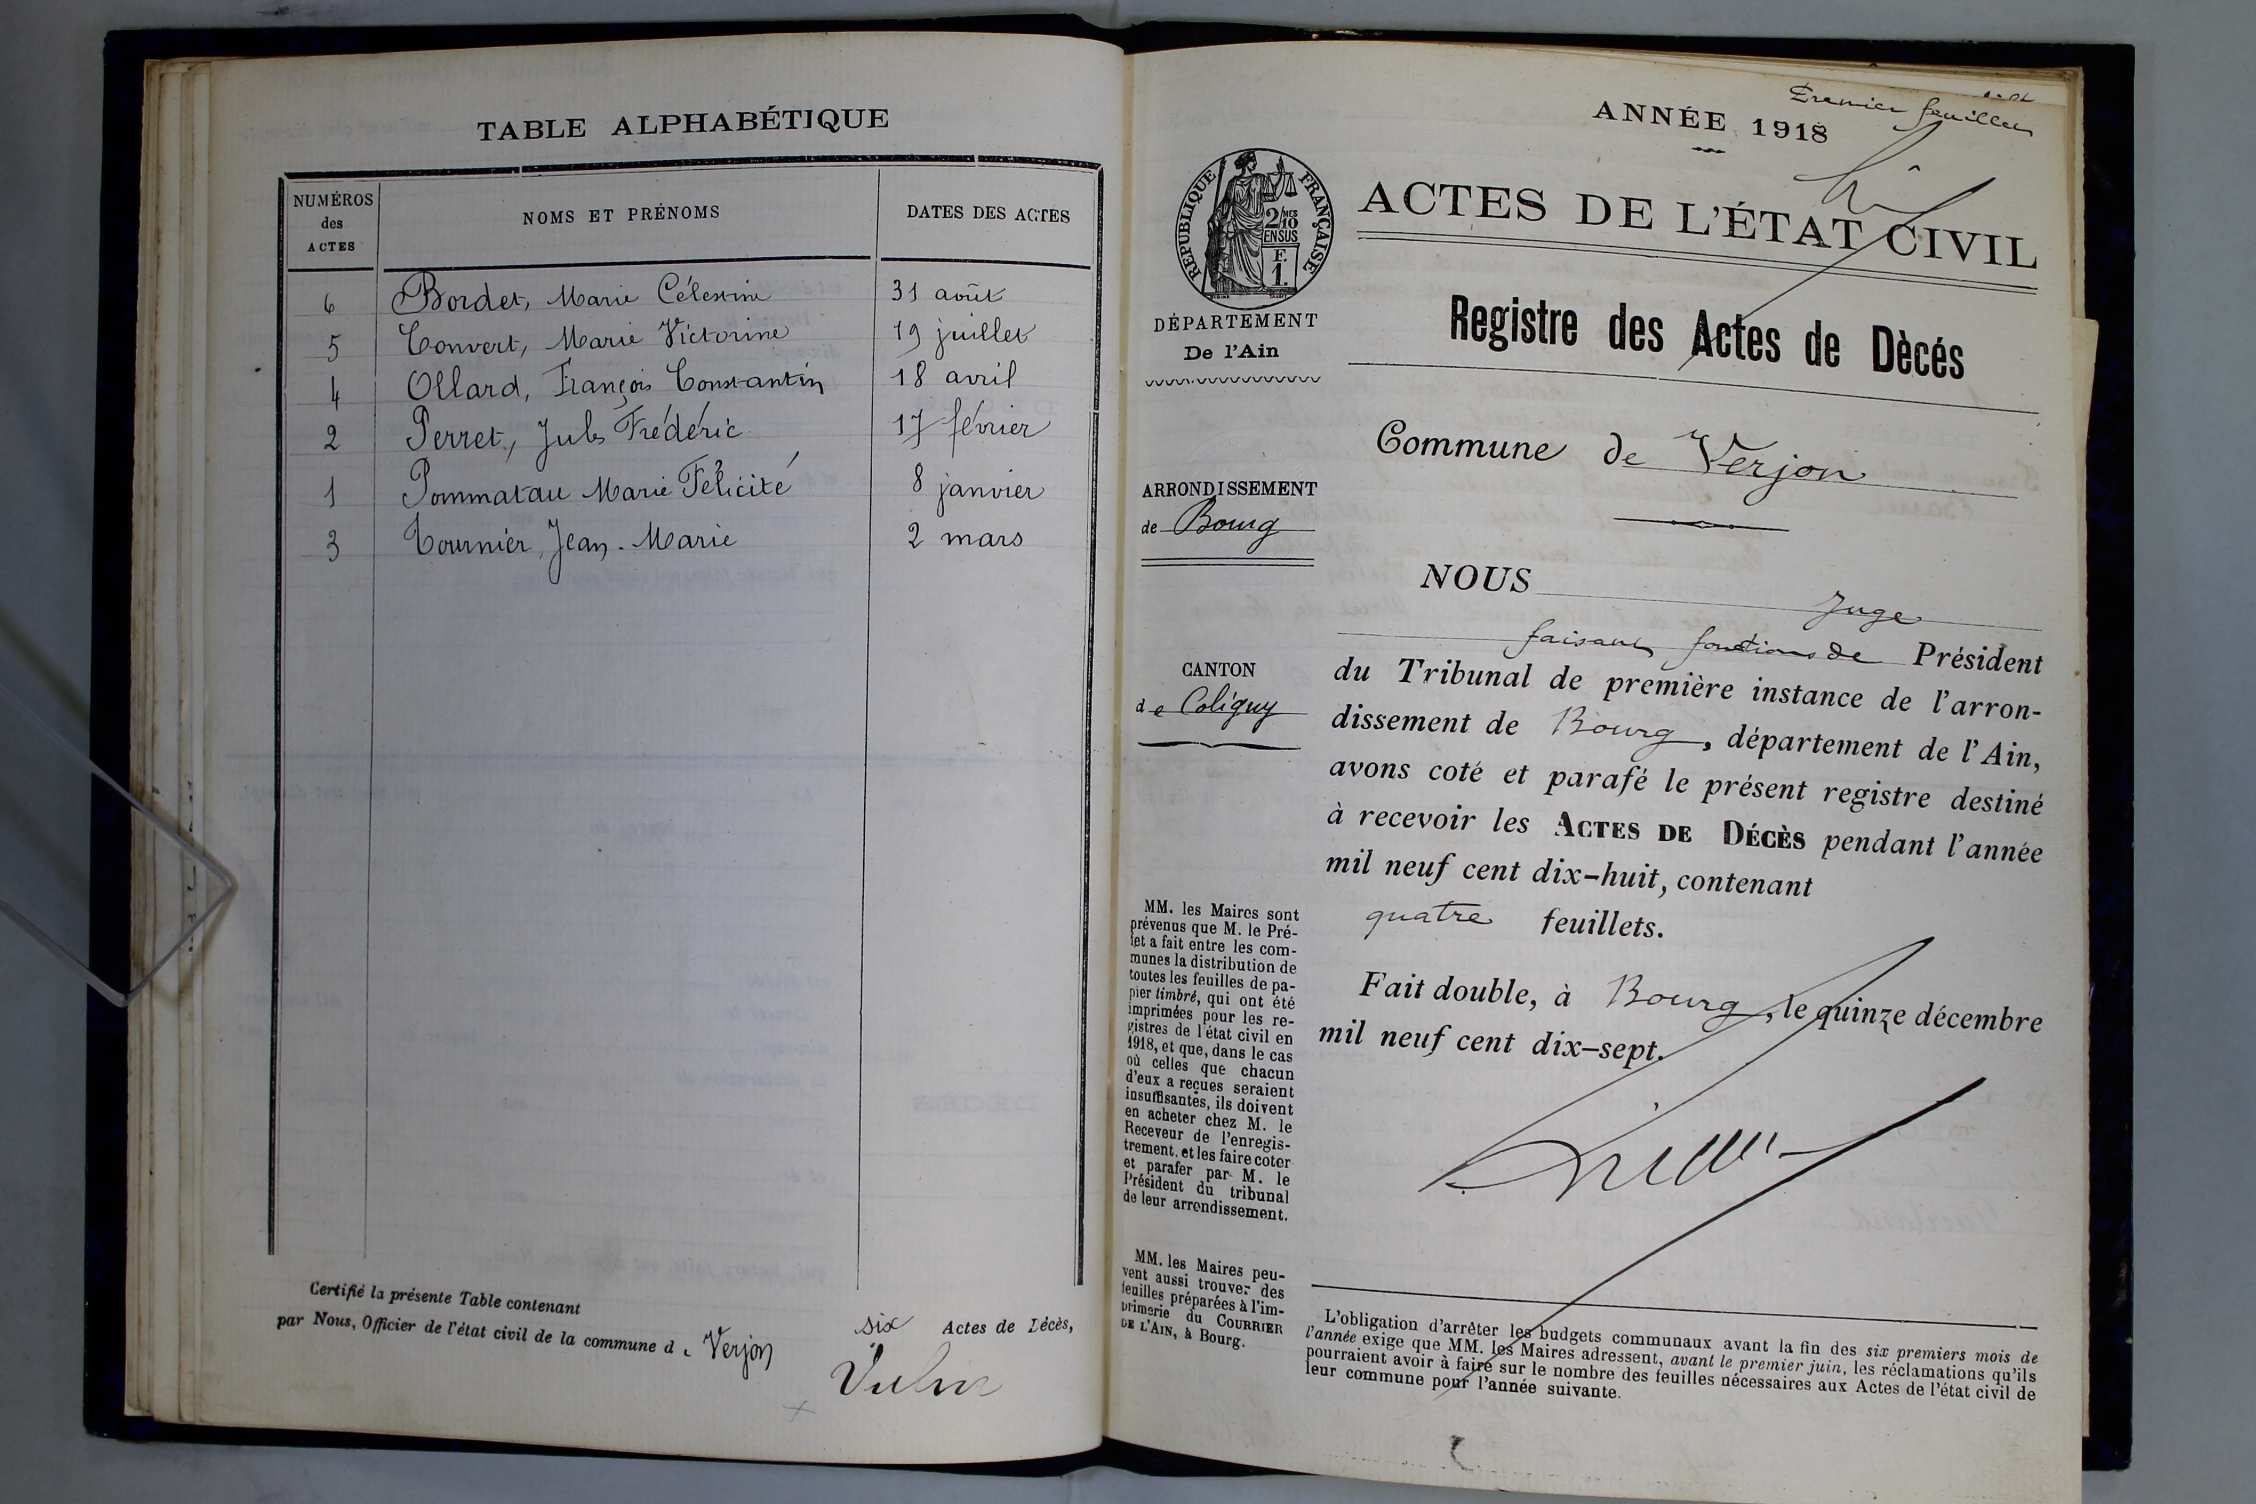 TABLE ALPHABÉTIQUE
NUMÉROS des ACTES NOMS ET PRÉNOMS DATES DES ACTES
6 Bordet, Marie Célestine 31 août
5 Convert, Marie Victorine 19 juillet
4 Ollard, François Constantin 18 avril
2 Perret, Jules Frédéric 17 février
1 Pommatau Marie Félicité 8 janvier
3 Tournier, Jean-Marie 2 mars
Certifié la présente Table contenant six Actes de Décès,
par Nous, Officier de l'état civil de la commune de Verjon
Premier feuillet
ANNÉE 1918
ACTES DE L'ÉTAT CIVIL
Registre des Actes de Dècés
RÉPUBLIQUE FRANÇAISE
2/10 MES
EN SUS
F.
1.
DÉPARTEMENT
De l'Ain
ARRONDISSEMENT
de Bourg
CANTON
de Coligny
MM. les Maires sont
prévenus que M. le Pré-
fet a fait entre les com-
munes la distribution de
toutes les feuilles de pa-
pier timbré, qui ont été
imprimées pour les re-
gistres de l'état civil en
1918, et que, dans le cas
où celles que chacun
d'eux a reçues seraient
insuffisantes, ils doivent
en acheter chez M. le
Receveur de l'enregis-
trement, et les faire coter
et parafer par M. le
Président du tribunal
de leur arrondissement.
MM. les Maires peu-
vent aussi trouver des
feuilles préparées à l'im-
primerie du COURRIER
DE L'AIN, à Bourg.
Commune de Verjon
NOUS Juge
faisant fonctions de Président
du Tribunal de première instance de l'arron-
dissement de Bourg, département de l'Ain,
avons coté et parafé le présent registre destiné
à recevoir les ACTES DE DÉCÈS pendant l'année
mil neuf cent dix-huit, contenant
quatre feuillets.
Fait double, à Bourg, le quinze décembre
mil neuf cent dix-sept.
L'obligation d'arrêter les budgets communaux avant la fin des six premiers mois de
l'année exige que MM. les Maires adressent, avant le premier juin, les réclamations qu'ils
pourraient avoir à faire sur le nombre des feuilles nécessaires aux Actes de l'état civil de
leur commune pour l'année suivante.